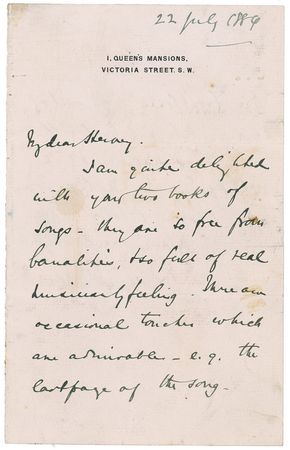 22 July
1, QUEEN'S MANSIONS,
VICTORIA STREET. S.W.
My dear Hervey.
I am quite delighted
with your two books of
songs - they are so free from
banalities, & so full of real
musicianly feeling. There are
occasional touches which
are admirable - e.g. the
last page of the song -